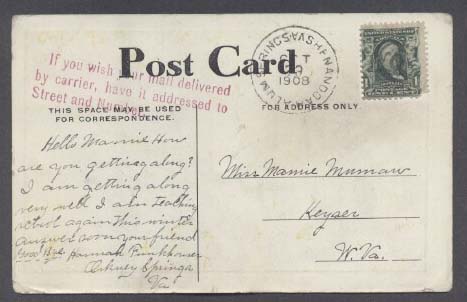 Post Card
If you wish your mail delivered
by carrier, have it addressed to
Street and Number.
THIS SPACE MAY BE USED
FOR CORRESPONDENCE.
Hello Mamie How
are you getting along?
I am getting along
very well I am teaching
school again this winter
answer soon your friend
Good Bye. Hannah Funkhouser
Orkney Springs
Va
SHENANDOAH ALUM SPRINGS VA
OCT
1908
FOR ADDRESS ONLY.
Miss Mamie Mumaw
Keyser
W. Va.